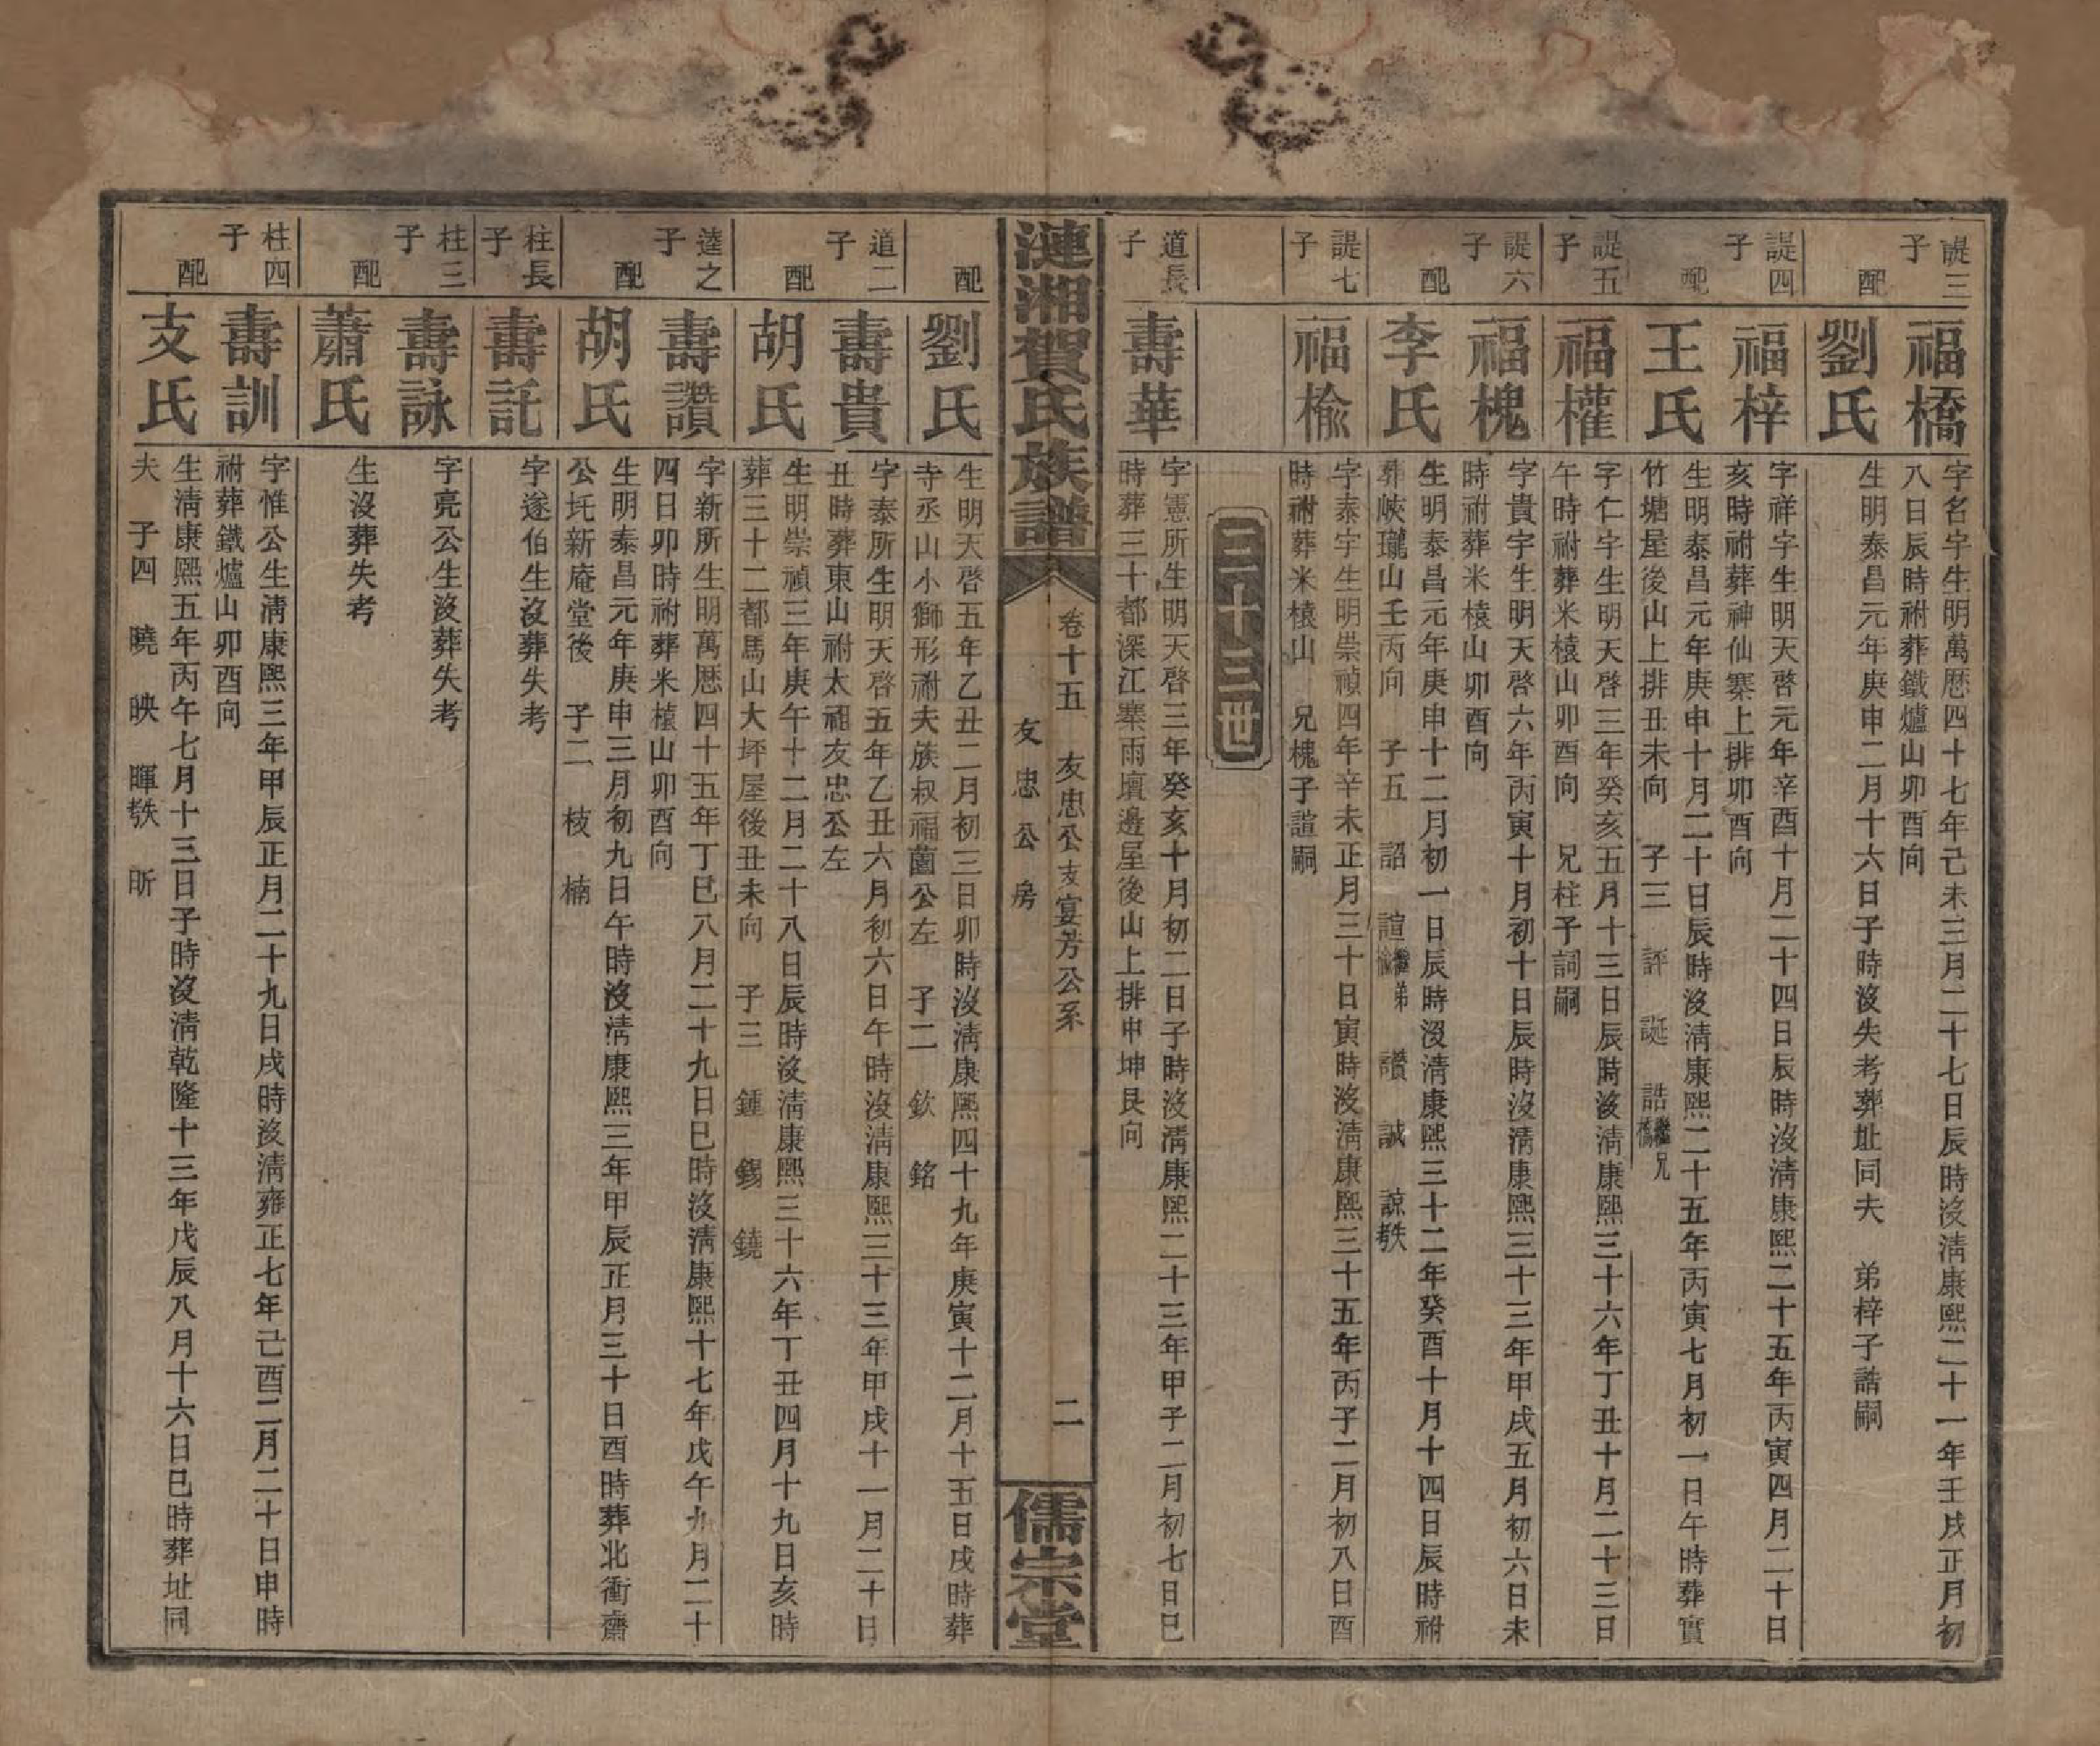 諟三子
福橋
字名字生明萬厯四十七年己未三月二十七日辰時沒淸康熙二十一年壬戌正月初
八日辰時祔葬鐵爐山卯酉向
配
劉氏
生明泰昌元年庚申二月十六日子時沒失考葬址同夫 弟梓子誥嗣
諟四子
福梓
字祥字生明天啓元年辛酉十月二十四日辰時沒淸康熙二十五年丙寅四月二十日
亥時祔葬神仙寨上排卯酉向
配
王氏
生明泰昌元年庚申十月二十日辰時沒淸康熙二十五年丙寅七月初一日午時葬實
竹塘屋後山上排丑未向 子三 評 誕 誥繼兄橋
諟五子
福權
字仁字生明天啓三年癸亥五月十三日辰時沒淸康熙三十六年丁丑十月二十三日
午時祔葬米榬山卯酉向 兄柱子訶嗣
諟六子
福槐
字貴字生明天啓六年丙寅十月初十日辰時沒淸康熙三十三年甲戌五月初六日未
時祔葬米榬山卯酉向
配
李氏
生明泰昌元年庚申十二月初一日辰時沒淸康熙三十二年癸酉十月十四日辰時祔
葬峽瓏山壬丙向 子五 詔 諠繼弟楡 讚 誠 諒
諟七子
福楡
字泰宇生明崇禎四年辛未正月三十日寅時沒淸康熙三十五年丙子二月初八日酉
時祔葬米榬山 兄槐子諠嗣
三十三世
道長子
壽華
字憲所生明天啓三年癸亥十月初二日子時沒淸康熙二十三年甲子二月初七日巳
時葬三十都深江寨雨壇邊屋後山上排申坤艮向
漣湘賀氏族譜
卷十五 友忠公支宴芳公系 二
友忠公房
儒宗堂
配
劉氏
生明天啓五年乙丑二月初三日卯時沒淸康熙四十九年庚寅十二月十五日戌時葬
寺丞山小獅形祔夫族叔福薗公左 子二 欽 銘
道二子
壽貴
字泰所生明天啓五年乙丑六月初六日午時沒淸康熙三十三年甲戌十一月二十日
丑時葬東山祔太祖友忠公左
配
胡氏
生明崇禎三年庚午十二月二十八日辰時沒淸康熙三十六年丁丑四月十九日亥時
葬三十二都馬山大坪屋後丑未向 子三 鍾 錫 鐃
逵之子
壽讚
字新所生明萬厯四十五年丁巳八月二十九日巳時沒淸康熙十七年戊午九月二十
四日卯時祔葬米榬山卯酉向
配
胡氏
生明泰昌元年庚申三月初九日午時沒淸康熙三年甲辰正月三十日酉時葬北衝齋
公圫新庵堂後 子二 枝 楠
柱長子
壽託
字遂伯生沒葬失考
柱三子
壽詠
字亮公生沒葬失考
配
蕭氏
生沒葬失考
柱四子
壽訓
字惟公生淸康熙三年甲辰正月二十九日戌時沒淸雍正七年己酉二月二十日申時
祔葬鐵爐山卯酉向
配
支氏
生淸康熙五年丙午七月十三日子時沒淸乾隆十三年戊辰八月十六日巳時葬址同
夫 子四 曉 映 暉 昕